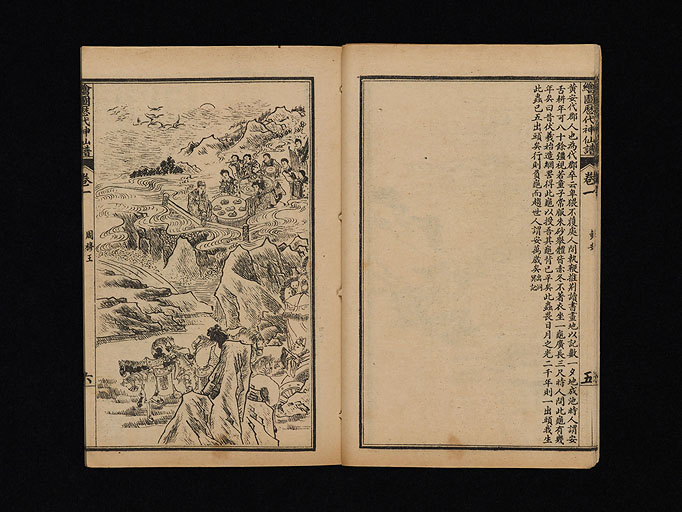 繪圖歷代神仙譜 卷一 黄安 五
黄安代郡人也為代郡卒云卑猥不獲處人間執鞭推荆讀書畫地以記數一夕地成池時人謂安
舌耕年可八十餘強視若童子常服朱砂舉體皆赤冬不著衣坐一龜廣長三尺時人問此龜有幾
年矣曰昔伏羲始造網罟得此龜以授吾其龜背已平矣此蟲畏日月之光二千年則一出頭我生
此蟲已五出頭矣行則負龜而趨世人謂安萬歲矣出洞冥記
繪圖歷代神仙譜 卷一 周穆王 六